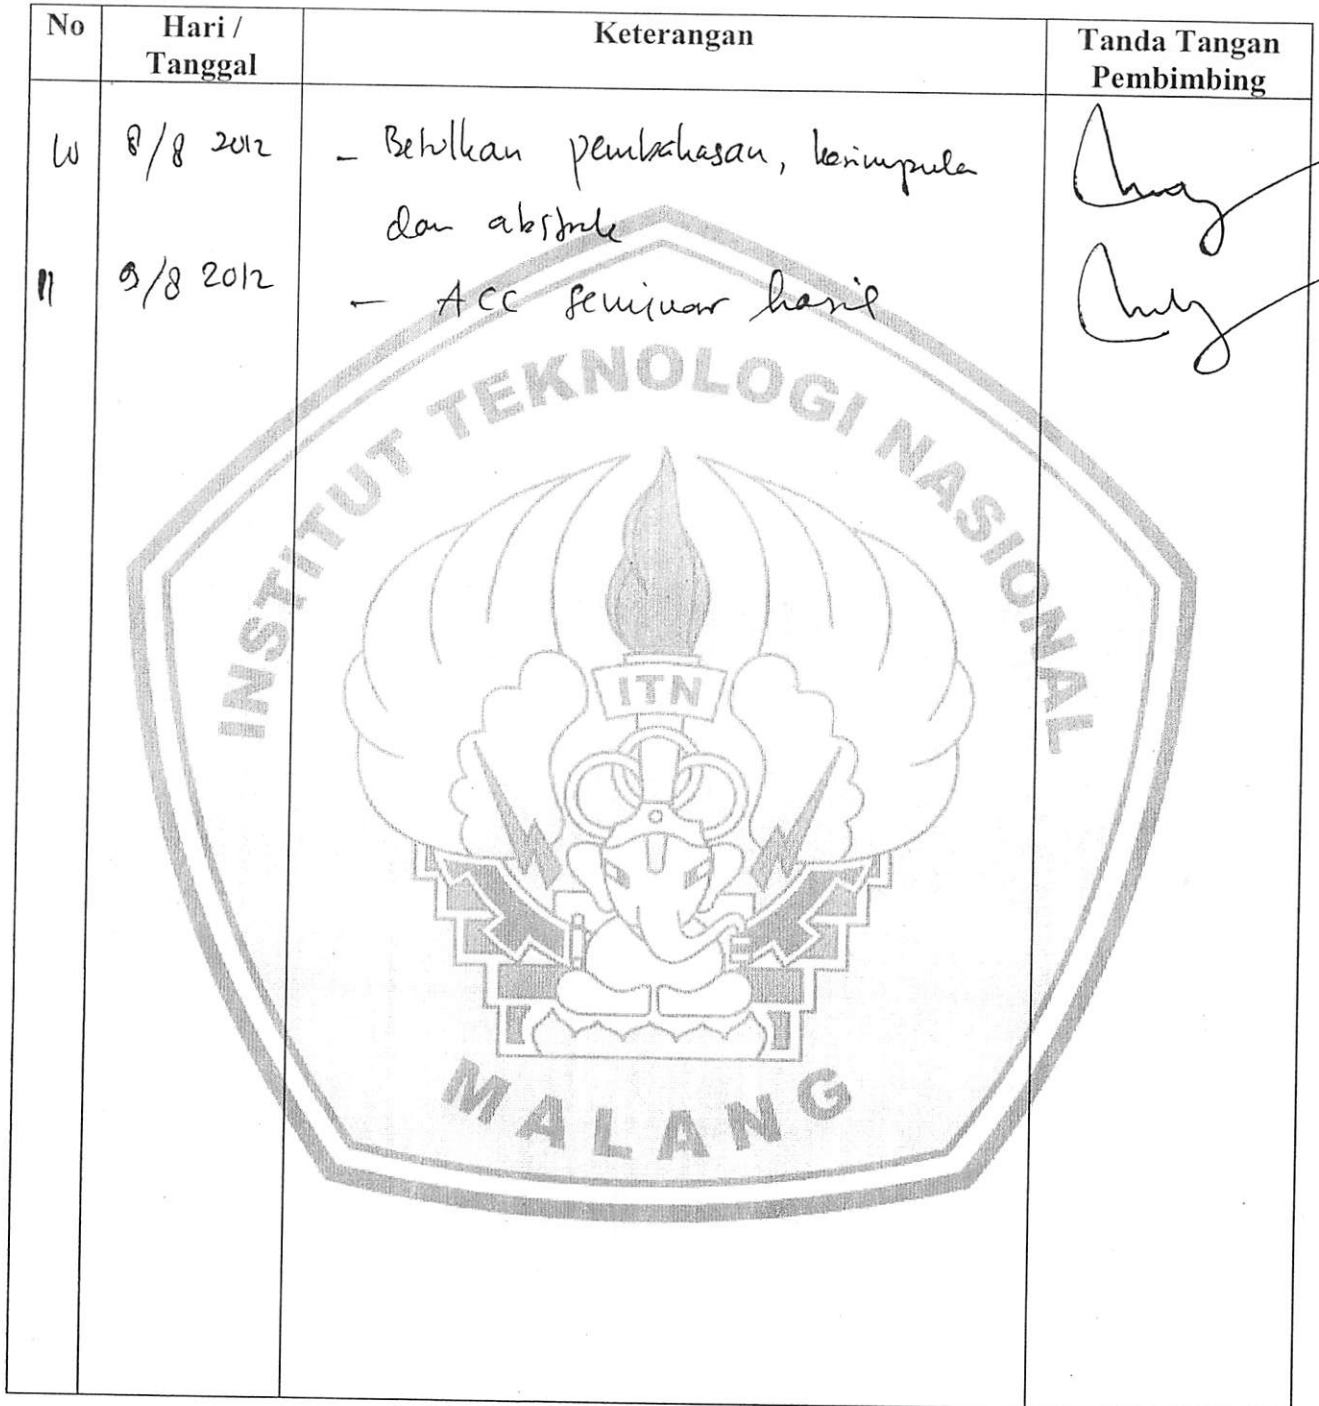 No Hari / Keterangan Tanda Tangan
Tanggal Pembimbing
10 8/8 2012 - Betulkan pembahasan, kesimpula
dan abstrak
11 9/8 2012 - ACC seminar hasil
INSTITUT TEKNOLOGI NASIONAL
ITN
MALANG